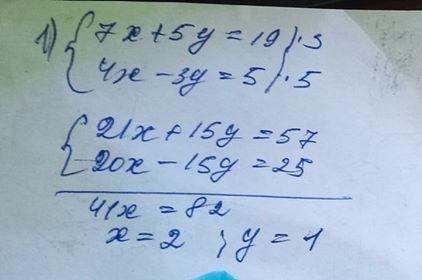 1) { 7x + 5y = 19 } · 3
{ 4x - 3y = 5 } · 5
{ 21x + 15y = 57
{ 20x - 15y = 25
41x = 82
x = 2 ; y = 1